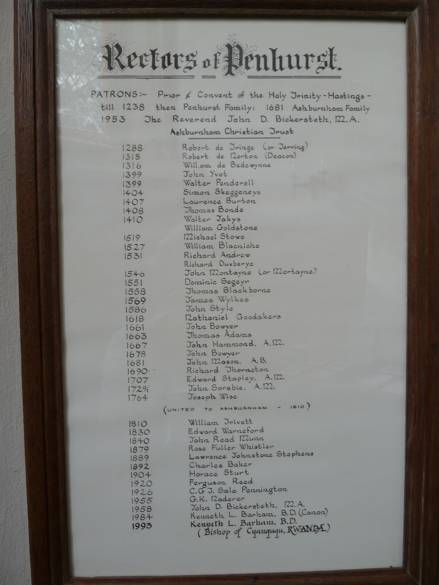 Rectors of Penhurst.
PATRONS:- Prior & Convent of the Holy Trinity-Hastings-
till 1238 then Penhurst Family: 1681 Ashburnham Family
1953 The Reverend John D. Bickersteth, M.A.
Ashburnham Christian Trust
1288 Robert de Iringe (or Jerring)
1315 Robert de Morton (Deacon)
1316 William de Bedewynne
1399 John Yvot
1399 Walter Penderell
1404 Simon Skeggeneys
1407 Laurence Burton
1408 Thomas Bonde
1410 Walter Jakys
William Goldstone
1519 Michael Stowe
1527 William Blaeniche
1531 Richard Andrew
Richard Duxberye
1546 John Montayne (or Mortayne?
1551 Dominic Segoyr
1558 Thomas Blackborne
1569 James Wylkes
1586 John Style
1618 Nathaniel Goodakers
1661 John Bowyer
1663 Thomas Adams
1667 John Hammond, A.M.
1678 John Bowyer
1681 John Mason, A.B.
1690 Richard Thornton
1707 Edward Stapley, A.M.
1729 John Sorsbie, A.M.
1764 Joseph Wise
(UNITED TO ASHBURNHAM - 1810)
1810 William Trivett
1830 Edward Warneford
1840 John Read Munn
1879 Rose Fuller Whistler
1889 Lawrence Johnstone Stephens
1892 Charles Baker
1904 Horace Sturt
1920 Ferguson Reed
1926 C.G.J. Sale Pennington
1955 G.K. Naderer
1958 John D. Bickersteth, M.A.
1984 Kenneth L. Barham, B.D. (Canon)
1993 Kenneth L. Barham, B.D.
(Bishop of Cyangugu, RWANDA)